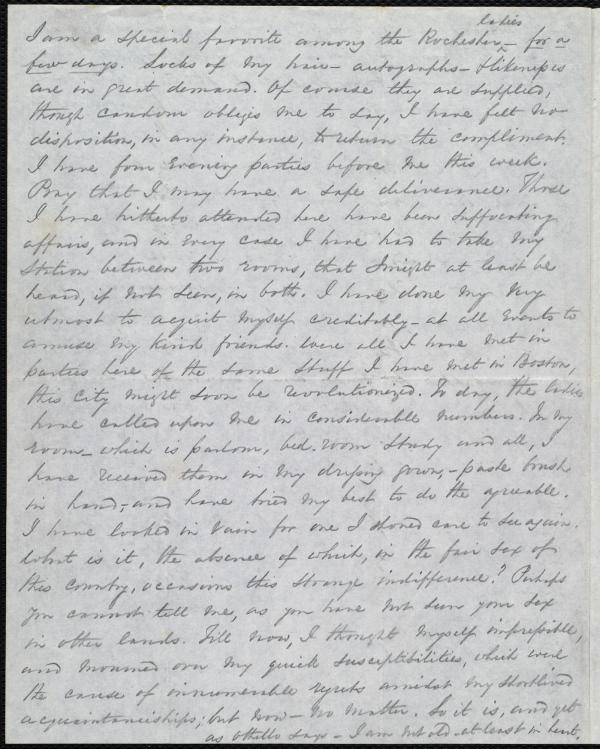 I am a special favorite among the Rochester ladies – for a
few days. Locks of my hair – autographs – & likenesses
are in great demand. Of course they are supplied,
though candor obliges me to say, I have felt no
disposition, in any instance, to return the compliment.
I have four evening parties before me this week.
Pray that I may have a safe deliverance. Those
I have hitherto attended here have been suffocating
affairs, and in every case I have had to take my
station between two rooms, that I might at least be
heard, if not seen, in both. I have done my very
utmost to acquit myself creditably – at all events to
amuse my kind friends. Were all I have met in
parties here of the same stuff I have met in Boston,
this city might soon be revolutionized. To day, the ladies
have called upon me in considerable numbers. In my
room – which is parlour, bed-room study and all, I
have received them in my dressing gown, – paste brush
in hand, – and have tried my best to do the agreeable.
I have looked in vain for one I should care to see again.
What is it, the absence of which, in the fair sex of
this country, occasions this strange indifference? Perhaps
you cannot tell me, as you have not seen your sex
in other lands. Till now, I thought myself impressible,
and mourned over my quick susceptibilities, which were
the cause of innumerable regrets amidst my shortlived
acquaintanceships; but now – no matter. So it is, and yet
as Othello says – I am not old – at least in heart,